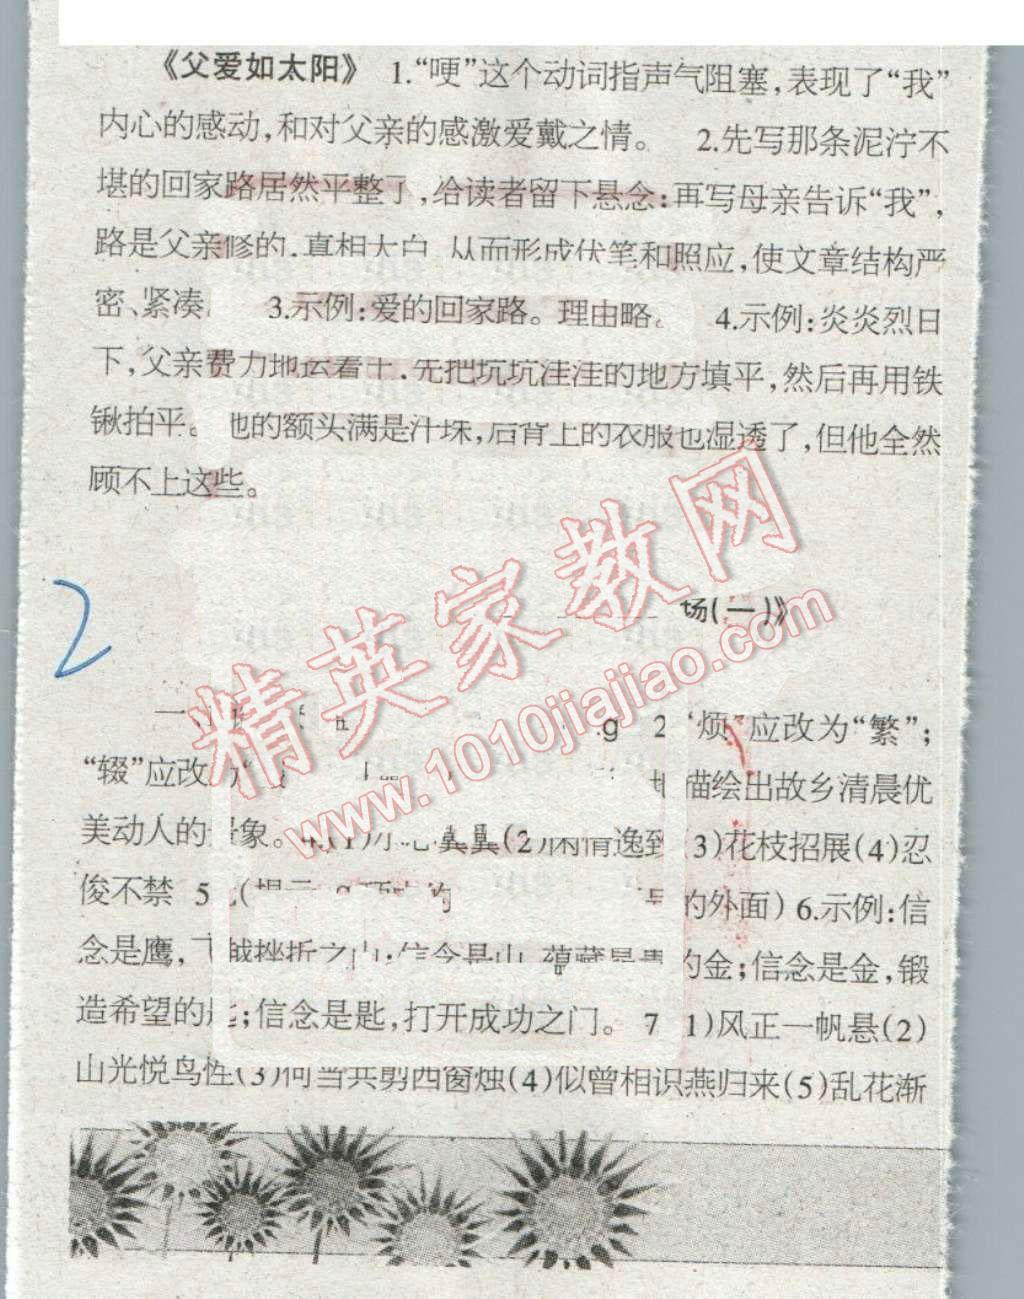 《父爱如太阳》 1.“哽”这个动词指声气阻塞,表现了“我”
内心的感动,和对父亲的感激爱戴之情。 2.先写那条泥泞不
堪的回家路居然平整了,给读者留下悬念;再写母亲告诉“我”,
路是父亲修的,真相大白,从而形成伏笔和照应,使文章结构严
密、紧凑。 3.示例:爱的回家路。理由略。 4.示例:炎炎烈日
下,父亲费力地运着土,先把坑坑洼洼的地方填平,然后再用铁
锹拍平。他的额头满是汗珠,后背上的衣服也湿透了,但他全然
顾不上这些。
2
场(一)》
精英家教网
www.1010jiajiao.com
一、 g 2 “烦”应改为“繁”;
“辍”应改 描绘出故乡清晨优
美动人的景象。4.(1)小心翼翼(2)闲情逸致(3)花枝招展(4)忍
俊不禁 5 的外面) 6.示例:信
念是鹰,飞越挫折之山;信念是山,蕴藏 的金;信念是金,锻
造希望的匙;信念是匙,打开成功之门。 7.(1)风正一帆悬(2)
山光悦鸟性(3)何当共剪西窗烛(4)似曾相识燕归来(5)乱花渐